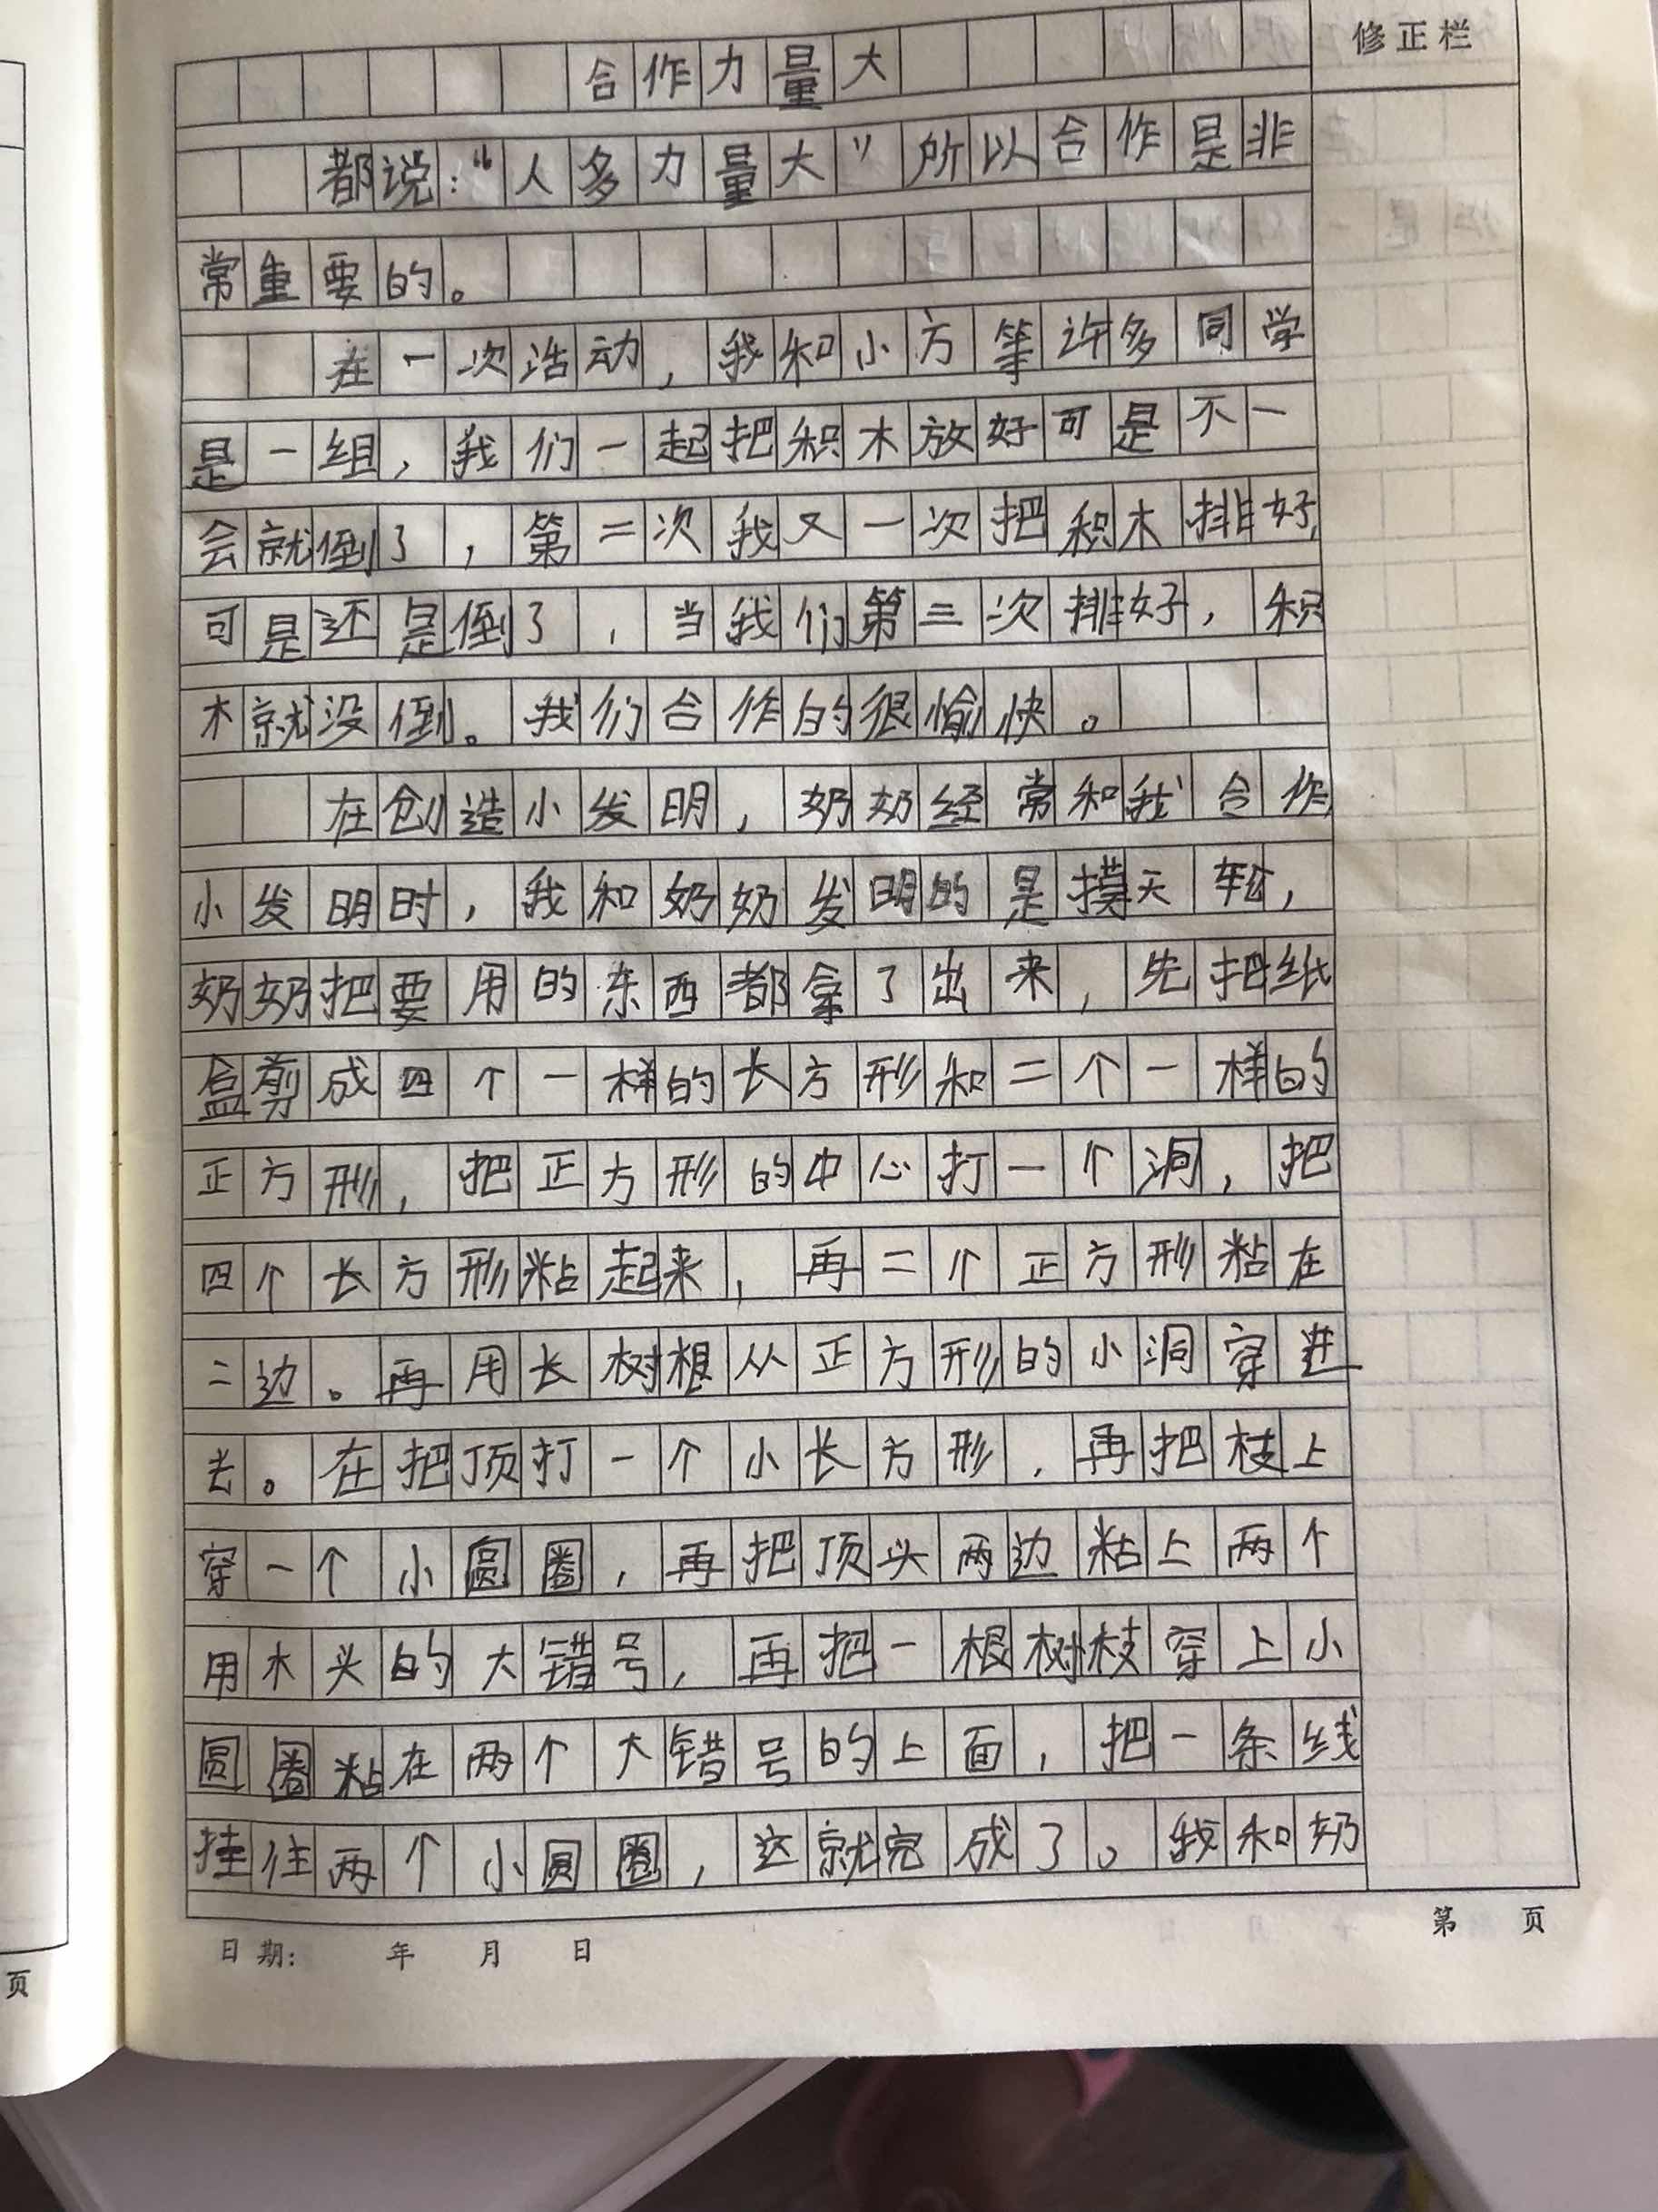 修正栏
合作力量大
都说：“人多力量大”所以合作是非
常重要的。
在一次活动，我和小方等许多同学
是一组，我们一起把积木放好可是不一
会就倒了，第二次我又一次把积木排好，
可是还是倒了，当我们第三次排好，积
木就没倒。我们合作的很愉快。
在创造小发明，奶奶经常和我合作
小发明时，我和奶奶发明的是摸天轮，
奶奶把要用的东西都拿了出来，先把纸
盒剪成四个一样的长方形和二个一样的
正方形，把正方形的中心打一个洞，把
四个长方形粘起来，再二个正方形粘在
二边。再用长树根从正方形的小洞穿进
去。在把顶打一个小长方形，再把枝上
穿一个小圆圈，再把顶头两边粘上两个
用木头的大错号，再把一根树枝穿上小
圆圈粘在两个大错号的上面，把一条线
挂住两个小圆圈，这就完成了。我和奶
第 页
日期： 年 月 日
页